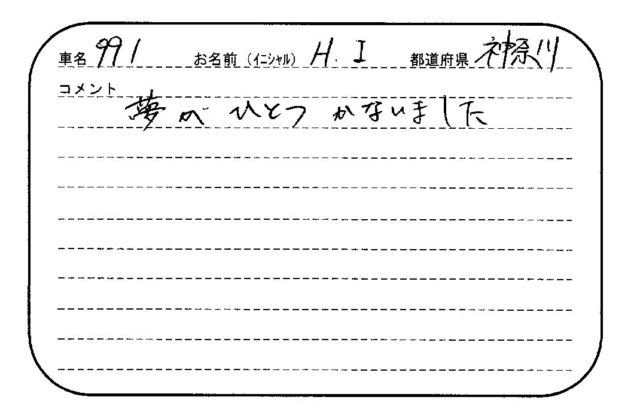 車名 991 お名前（ｲﾆｼｬﾙ） H.I 都道府県 神奈川
コメント
夢が ひとつ かないました